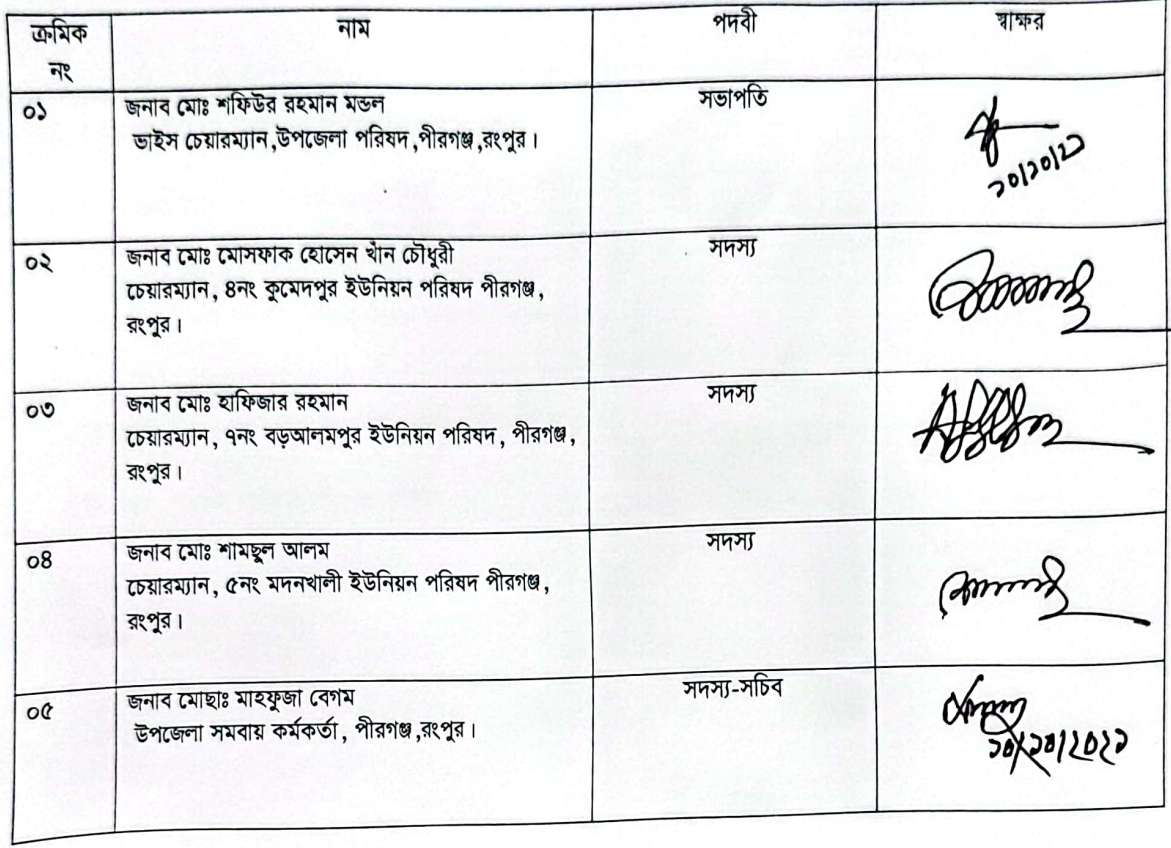 ক্রমিক নং নাম পদবী স্বাক্ষর
০১ জনাব মোঃ শফিউর রহমান মন্ডল সভাপতি
ভাইস চেয়ারম্যান,উপজেলা পরিষদ,পীরগঞ্জ,রংপুর।
০২ জনাব মোঃ মোসফাক হোসেন খাঁন চৌধুরী সদস্য
চেয়ারম্যান, ৪নং কুমেদপুর ইউনিয়ন পরিষদ পীরগঞ্জ,
রংপুর।
০৩ জনাব মোঃ হাফিজার রহমান সদস্য
চেয়ারম্যান, ৭নং বড়আলমপুর ইউনিয়ন পরিষদ, পীরগঞ্জ,
রংপুর।
০৪ জনাব মোঃ শামছুল আলম সদস্য
চেয়ারম্যান, ৫নং মদনখালী ইউনিয়ন পরিষদ পীরগঞ্জ,
রংপুর।
০৫ জনাব মোছাঃ মাহফুজা বেগম সদস্য-সচিব
উপজেলা সমবায় কর্মকর্তা, পীরগঞ্জ,রংপুর।